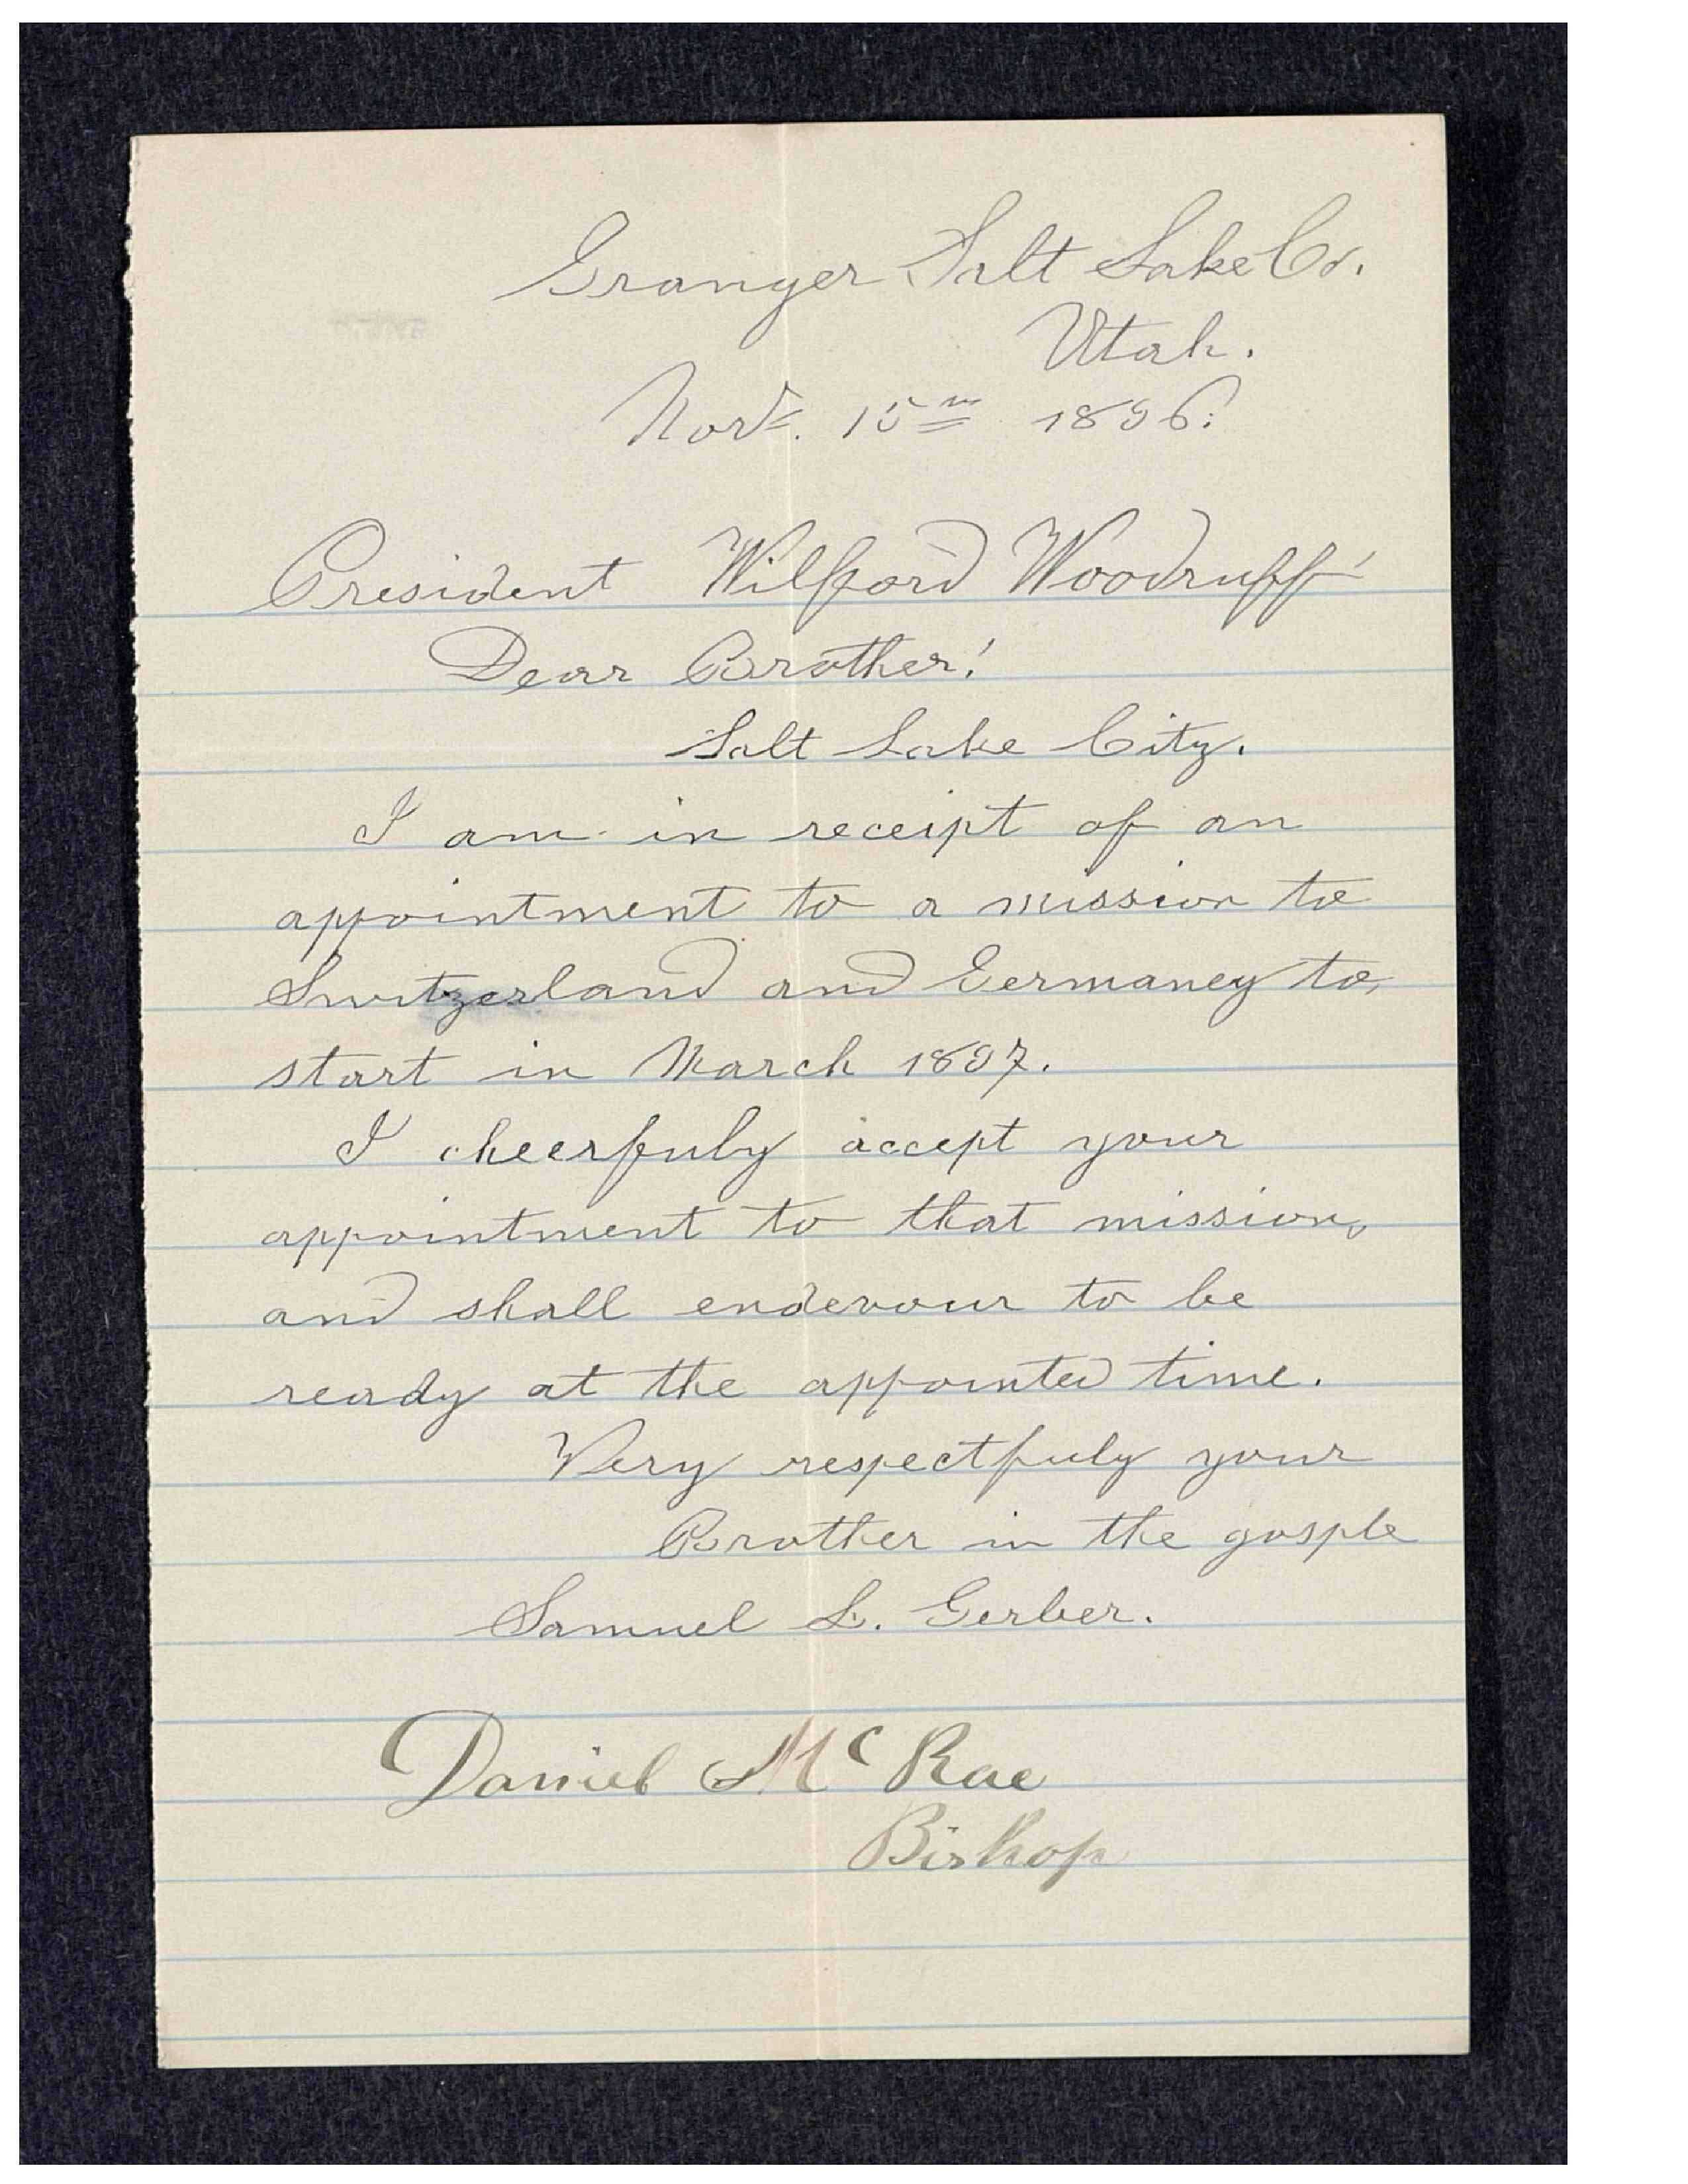 Granger Salt Lake Co.
Utah.
Nov. 15th 1896.
President Wilford Woodruff
Dear Brother!
Salt Lake City.
I am in receipt of an
appointment to a mission to
Switzerland and Germaney to
start in March 1897.
I cheerfuly accept your
appointment to that mission,
and shall endevour to be
ready at the appointed time.
Very respectfuly your
Brother in the gosple
Samuel L. Gerber.
Daniel McRae
Bishop